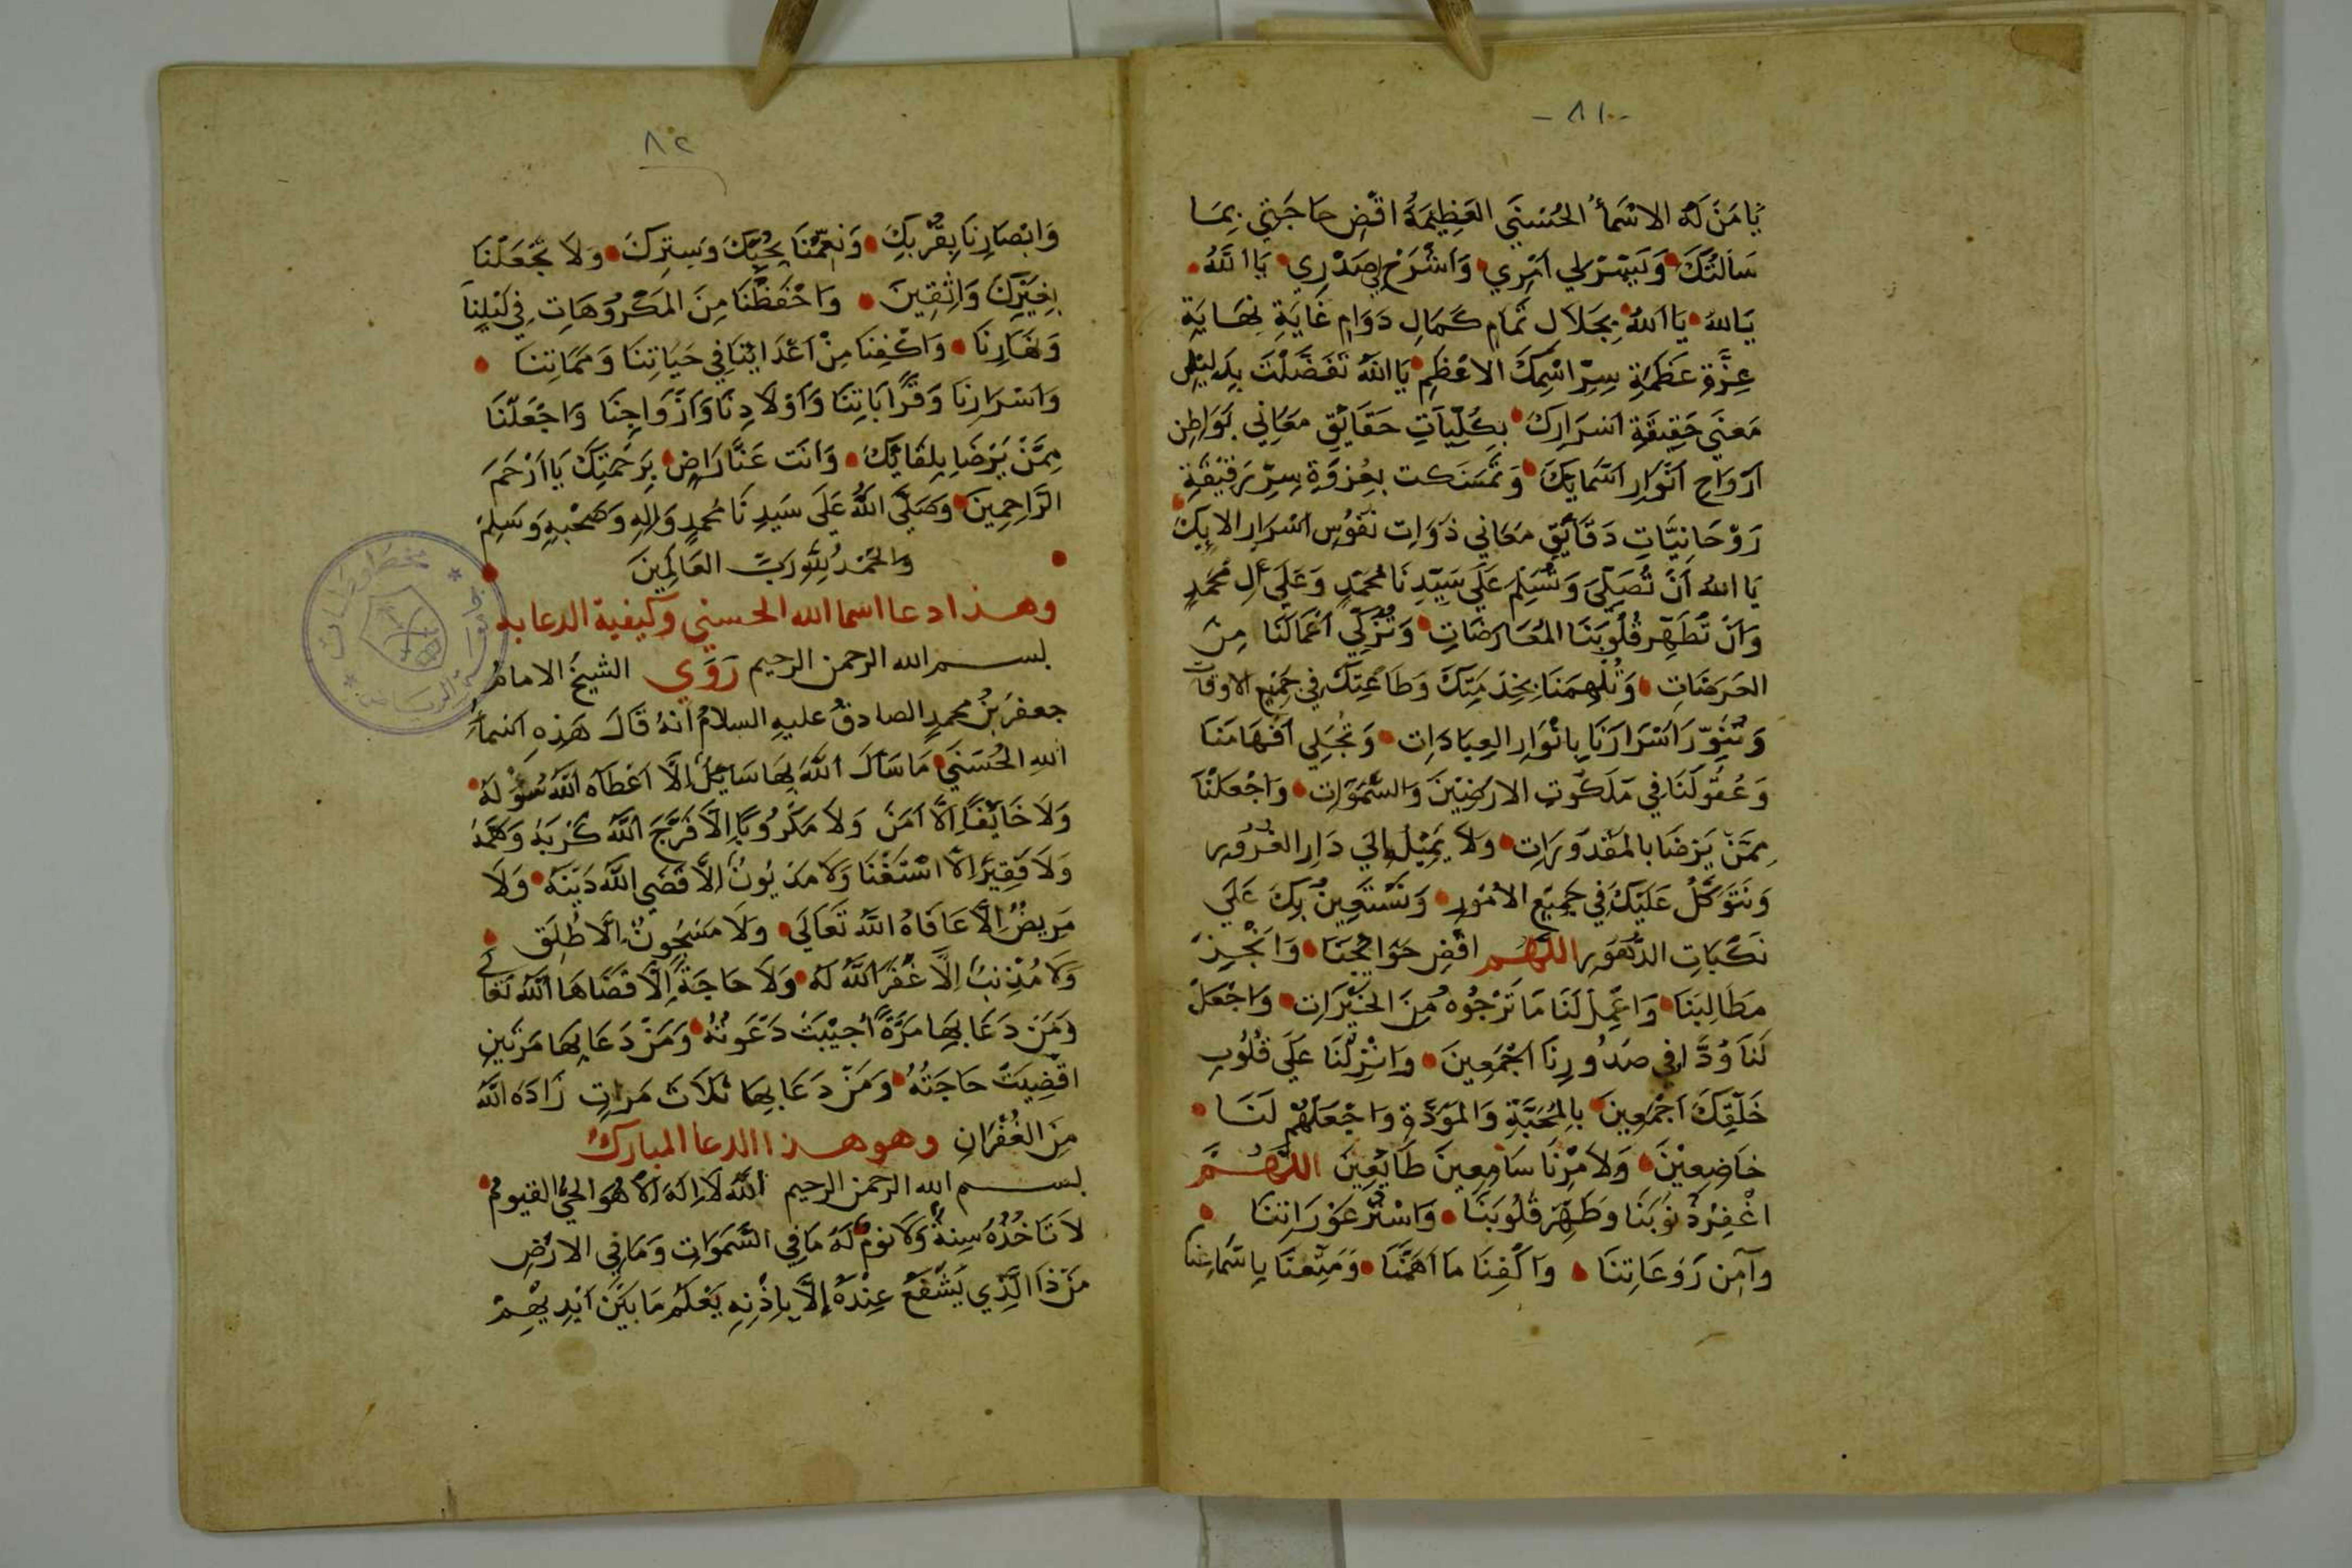 -٨١-
يَا مَنْ لَهُ الاسْمَأُ الحُسْنَي العَظِيمَةُ اقْضِ حَاجَتِي بِمَا
سَأَلتُكَ وَيَسِّرْلِي اَمْرِي وَاشْرَحْ لِي صَدْرِي يَا اَللَّهُ
يَاللهُ يَا اَللهُ بِجَلَالِ تَمَامِ كَمَالِ دَوَامِ غَايَةِ نِهَايَةِ
عِزَّةِ عَظَمَةِ سِرِّ اسْمِكَ الاعْظَمِ يَا اللهُ تَفَضَّلْتَ بِدَلِيْلِ
مَعْنَي حَقِيقَةِ اَسْرَارِكَ بِكُلِّيَاتِ حَقَايِقِ مَعَانِي بَوَاطِنِ
اَرْوَاحِ اَنْوَارِ اَسْمَايِكَ وَتَمَسَّكت بِعُرْوَةِ سِرِّ رَقِيْقَةِ
رَوْحَانِيَّاتِ دَقَايِقِ مَعَانِي ذَوَاتِ نُفُوْسِ اَسْرَارِ الايِكَ
يَا اللهُ اَنْ تُصَلِّيَ وَتُسَلِمَ عَلَي سَيِّدِنَا مُحَمَّدٍ وَعَلَي الِ مُحَمَّدٍ
وَاَنْ تُطَهِّرَ قُلُوبَنَا المُعَارَضَاتِ وَتُزَكِّي اَعْمَالَنَا مِنَ
الحَرَضَاتِ وَتُلْهِمَنَا بِخِدْمَتِكَ وَطَاعَتِكَ فِي جَمِيْعِ الاوقات
وَتُنَوِّرَ اَسْرَارَنَا بِاَنْوَارِ العِبَادَاتِ وَتُجَلِي اَفْهَامَنَا
وَعُقُولَنَا فِي مَلَكُوتِ الارَضِيْنَ وَالسَّمَوَاتِ وَاجْعَلْنَا
مِمَّنْ يَرْضَا بالمَقْدُوْرَاتِ وَلاَ يَمِيْلُ اِلَي دَارِ الغُرُوْرِ
وَنَتَوَكَّلُ عَلَيْكَ فِي جَمِيْعِ الاُمُوْرِ وَنَسْتَعِينُ بِكَ عَلَي
نَكَبَاتِ الدُّهُوْرِ اللهُم اقْضِ حَوَايِجَنَا وَانْجِزْ
مَطَالِبَنَا وَاعْمِلْ لَنَا مَا نَرْجُوْهُ مِنَ الخَيْرَاتِ وَاجْعَلْ
لَنَا وُدًّا فِي صُدُورِنَا اَجْمَعِينَ وَاَنْزِلْنَا عَلَي قُلُوبِ
خَلْقِكَ اَجْمَعِينَ بِالمُحَبَّةِ وَالمَوَدَّةِ وَاجْعَلْهُمْ لَنَا
خَاضِعِيْنَ وَلاَمْرِنَا سَامِعِينَ طَايِعِينَ اللَّهُمَّ
اغْفِرْ ذُنُوبَنَا وَطَهِّرْ قُلُوبَنَا وَاسْتُرْ عَوْرَاتِنَا
وَآمِنْ رَوْعَاتِنَا وَاكْفِنَا مَا اَهَمَّنَا وَمَتِّعْنَا بِاَسْمَاعِنَا
٨٢
وَابْصَارِنَا بِقُرْبِكَ وَنَعِّمْنَا بِحُبِّكَ وَسِتِرِكَ وَلَا تَجْعَلْنَا
بِغَيْرِكَ وَاثِقِينَ وَاحْفَظْنَا مِنَ المَكْرُوْهَاتِ فِي لَيْلِنَا
وَنَهَارِنَا وَاكْفِنَا مِنْ اَعْدَائِنَا فِي حَيَاتِنَا وَمَمَاتِنَا
وَاَسْرَارِنَا وَقَرَابَاتِنَا وَاَوْلاَدِنَا وَاَزْوَاجِنَا وَاجْعَلْنَا
مِمَّنْ يَرْضَا بِلِقَايِكَ وَانت عَنَّا رَاضٍ بِرَحْمَتِكَ يَا اَرْحَمَ
الرَّاحِمِينَ وَصَلَّي اللهُ عَلَي سَيدِنَا مُحمدٍ وَالِهِ وَصَحْبِهِ وَسَلِمْ
وَالحَمْدُ لِلّهِ رَبِّ العَالَمِينَ
وهذا دعا اسما الله الحسني وكيفية الدعا به
بسم الله الرحمن الرحيم رَوَي الشيخُ الامامُ
جعفرُ بْنُ محمدٍ الصادقُ عليهِ السلامُ اَنهُ قَالَ هَذِهِ اَسْمَأُ
اللهِ الحُسْنَي مَا سَأَلَ اَللهَ بِهَا سَايِلٌ اِلَّا اَعْطَاهُ اَللهُ سُؤْلَهُ
وَلَا خَايِفًا اِلَّا اَمَنَ وَلَا مَكْرُوبًا اِلَّا فَرَّجَ اَللَّهُ كَرْبَهُ وَهَمَّهُ
وَلَا فَقِيْرًا اِلَّا اسْتَغْنَا وَلَا مَدْيُونٌ اِلَّا قَضَي اللَّهُ دَيْنَهُ وَلَا
مَرِيضٌ اِلَّا عَافَاهُ اللَّهُ تَعَالَي وَلَا مَسْجُونٌ اِلَّا اطْلِقَ
وَلَا مُذْنِبٌ اِلَّا غَفَرَ اَللَّهُ لَهُ وَلَا حَاجَةً اِلَّا قَضَاهَا اَللَّهُ تَعَالي
وَمَنْ دَعَا بِهَا مَرَّةً اُجِيْبَتْ دَعْوَتُهُ وَمَنْ دَعَا بِهَا مَرتَينِ
اقْضِيَتْ حَاجَتُهُ وَمَنْ دَعَا بِهَا ثَلَاثَ مَرَاتٍ زَادَهُ اللَّهُ
مِنَ الغُفْرَانِ وهو هذا الدعا المبارك
بسم الله الرحمن الرحيم اَللَّهُ لَا اِلَهَ اِلَّا هُوَ الحيُّ القيومُ
لَا تَاخُذُهُ سِنَةٌ وَلَا نومٌ لَهُ مَا فِي السَّمَوَاتِ وَمَا فِي الارْضِ
مَنْ ذَا الَّذِي يَشْفَعُ عِنْدَهُ اِلَّا بِاِذْنِهِ يَعْلَمُ مَا بَيْنَ اَيْدِيْهِمْ